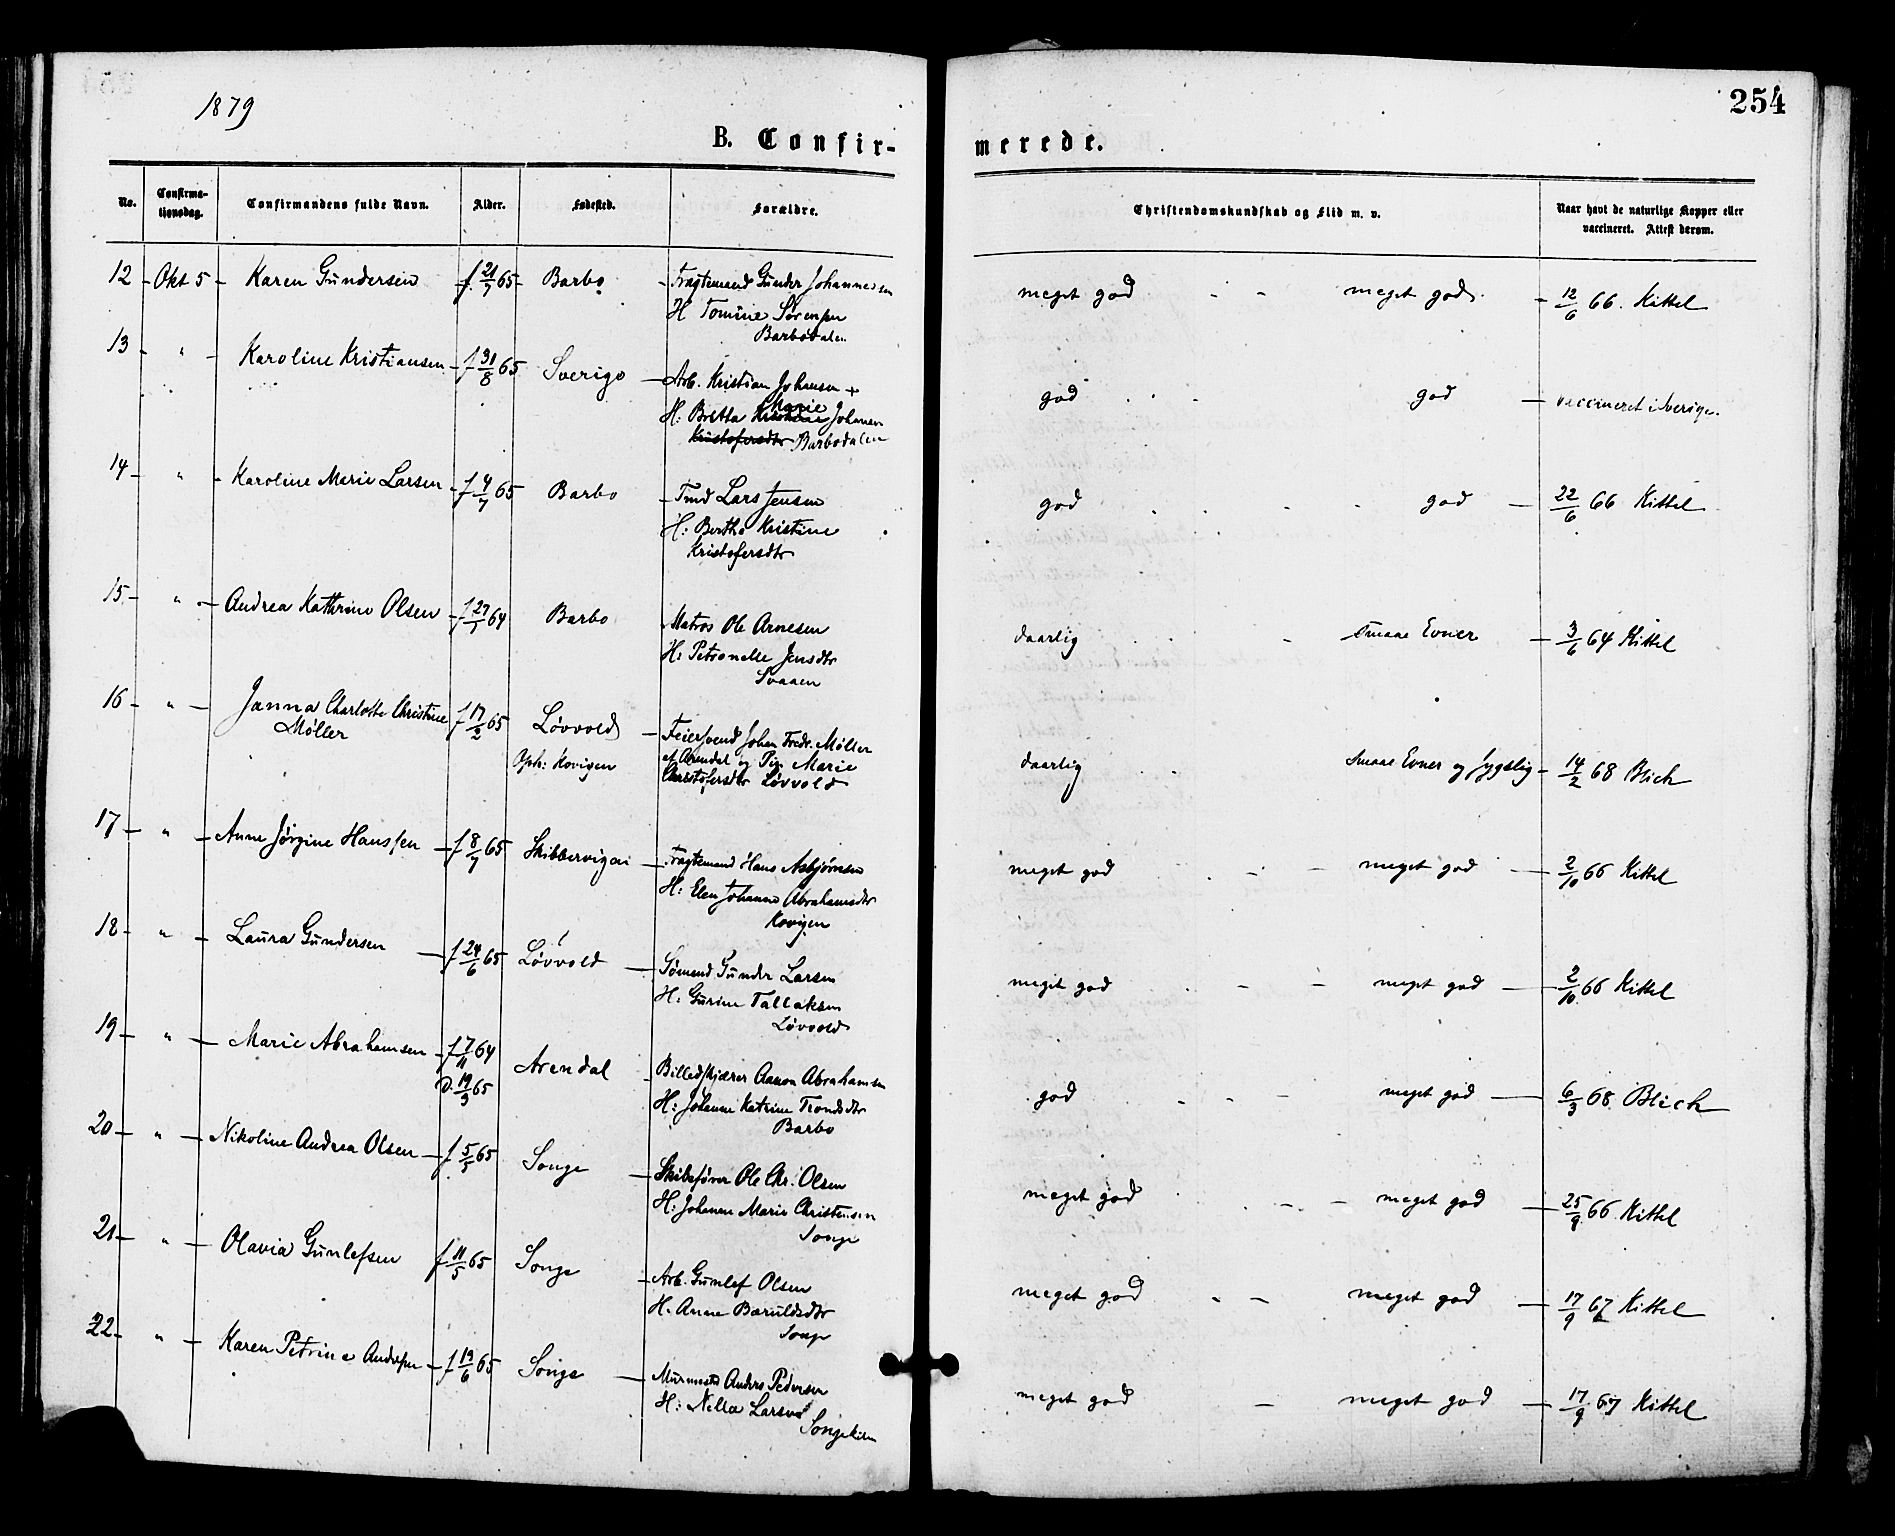 1879
254
B. Confir-
merede.
No.
Confirma-
tionsdag.
Confirmandens fulde Navn.
Alder.
Fødested.
Forældre.
Christendomskundskab og Flid m. v.
Naar havt de naturlige Kopper eller
vaccineret. Attest derom.
12 - Okt 5 - Karen Gundersen f. 21/7 65 - Barbo - Fragtemand Gunder Johannesen meget god - - meget god. - 12/6 66. Kittel
H Tomine Sørensen
Barbodalen
13 - " - Karoline Kristiansen - f 31/8 65 Sverige - Arb. Kristian Johansen + god . . - god - vaccineret i Sverige.
Marie
H: Britta Johansen
Kristofersdtr Barbodalen
14 - " - Karoline Marie Larsen - f 4/7 65 Barbo - Tmd Lars Jensen god . . - . god - 22/6 66 Kittel
H: Berthe Kristine
Kristofersdtr
15 - " - Andrea Kathrine Olsen - f 27/1 64 Barbo Matros Ole Arnesen daarlig . . - smaae Evner - 3/6 64 Kittel
H: Petronelle Jensdtr
Svaaen
16 - " - Janna Charlotte Christine f 17/2 65 Løvvold - Feiersvend Johan Fredr. Møller
Møller
Oph: Kovigen af Arendal og Pig. Marie daarlig . . smaae Evner og sygelig - 14/2 68 Blich
Christofersdtr Løvvold
17 - " - Anne Jørgine Hanssen - f 8/7 65 Skibbervigen - Fragtemand Hans Asbjørnsen meget god - - - meget god - 2/10 66 Kittel
H: Elen Johanne Abrahamsdtr
Kovigen
18 - " - Laura Gundersen - f 24/6 65 Løvvold - Sömand Gunder Larsen meget god . - - meget god - 2/10 66 Kittel
H: Gurine Tallaksen
Løvvold
19 - " - Marie Abrahamsen - f 7/11 64 Arendal - Billedskjærer Aanon Abrahamsen god . - - - meget god - 6/3 68. Blich
D. 19/3 65
H: Johanne Katrine Trondsdtr
Barbo
20 - " - Nikoline Andrea Olsen - f 5/5 65 Songe - Skibsfører Ole Chr. Olsen meget god . - - - meget god - 25/9 66. Kittel
H: Johanne Marie Christensen
Songe
21 - " - Olavia Gunlefsen f 11/5 65 Songe - Arb. Gunlef Olsen meget god - - meget god - 17/9 67 Kittel
H. Anne Baruldsdtr
Songe
22 - " - Karen Petrine Andersen - f 19/6 65 Songe - Murmester Anders Pedersen meget god - meget god - 17/9 67 Kittel
H: Nella Larsen
Songekilen